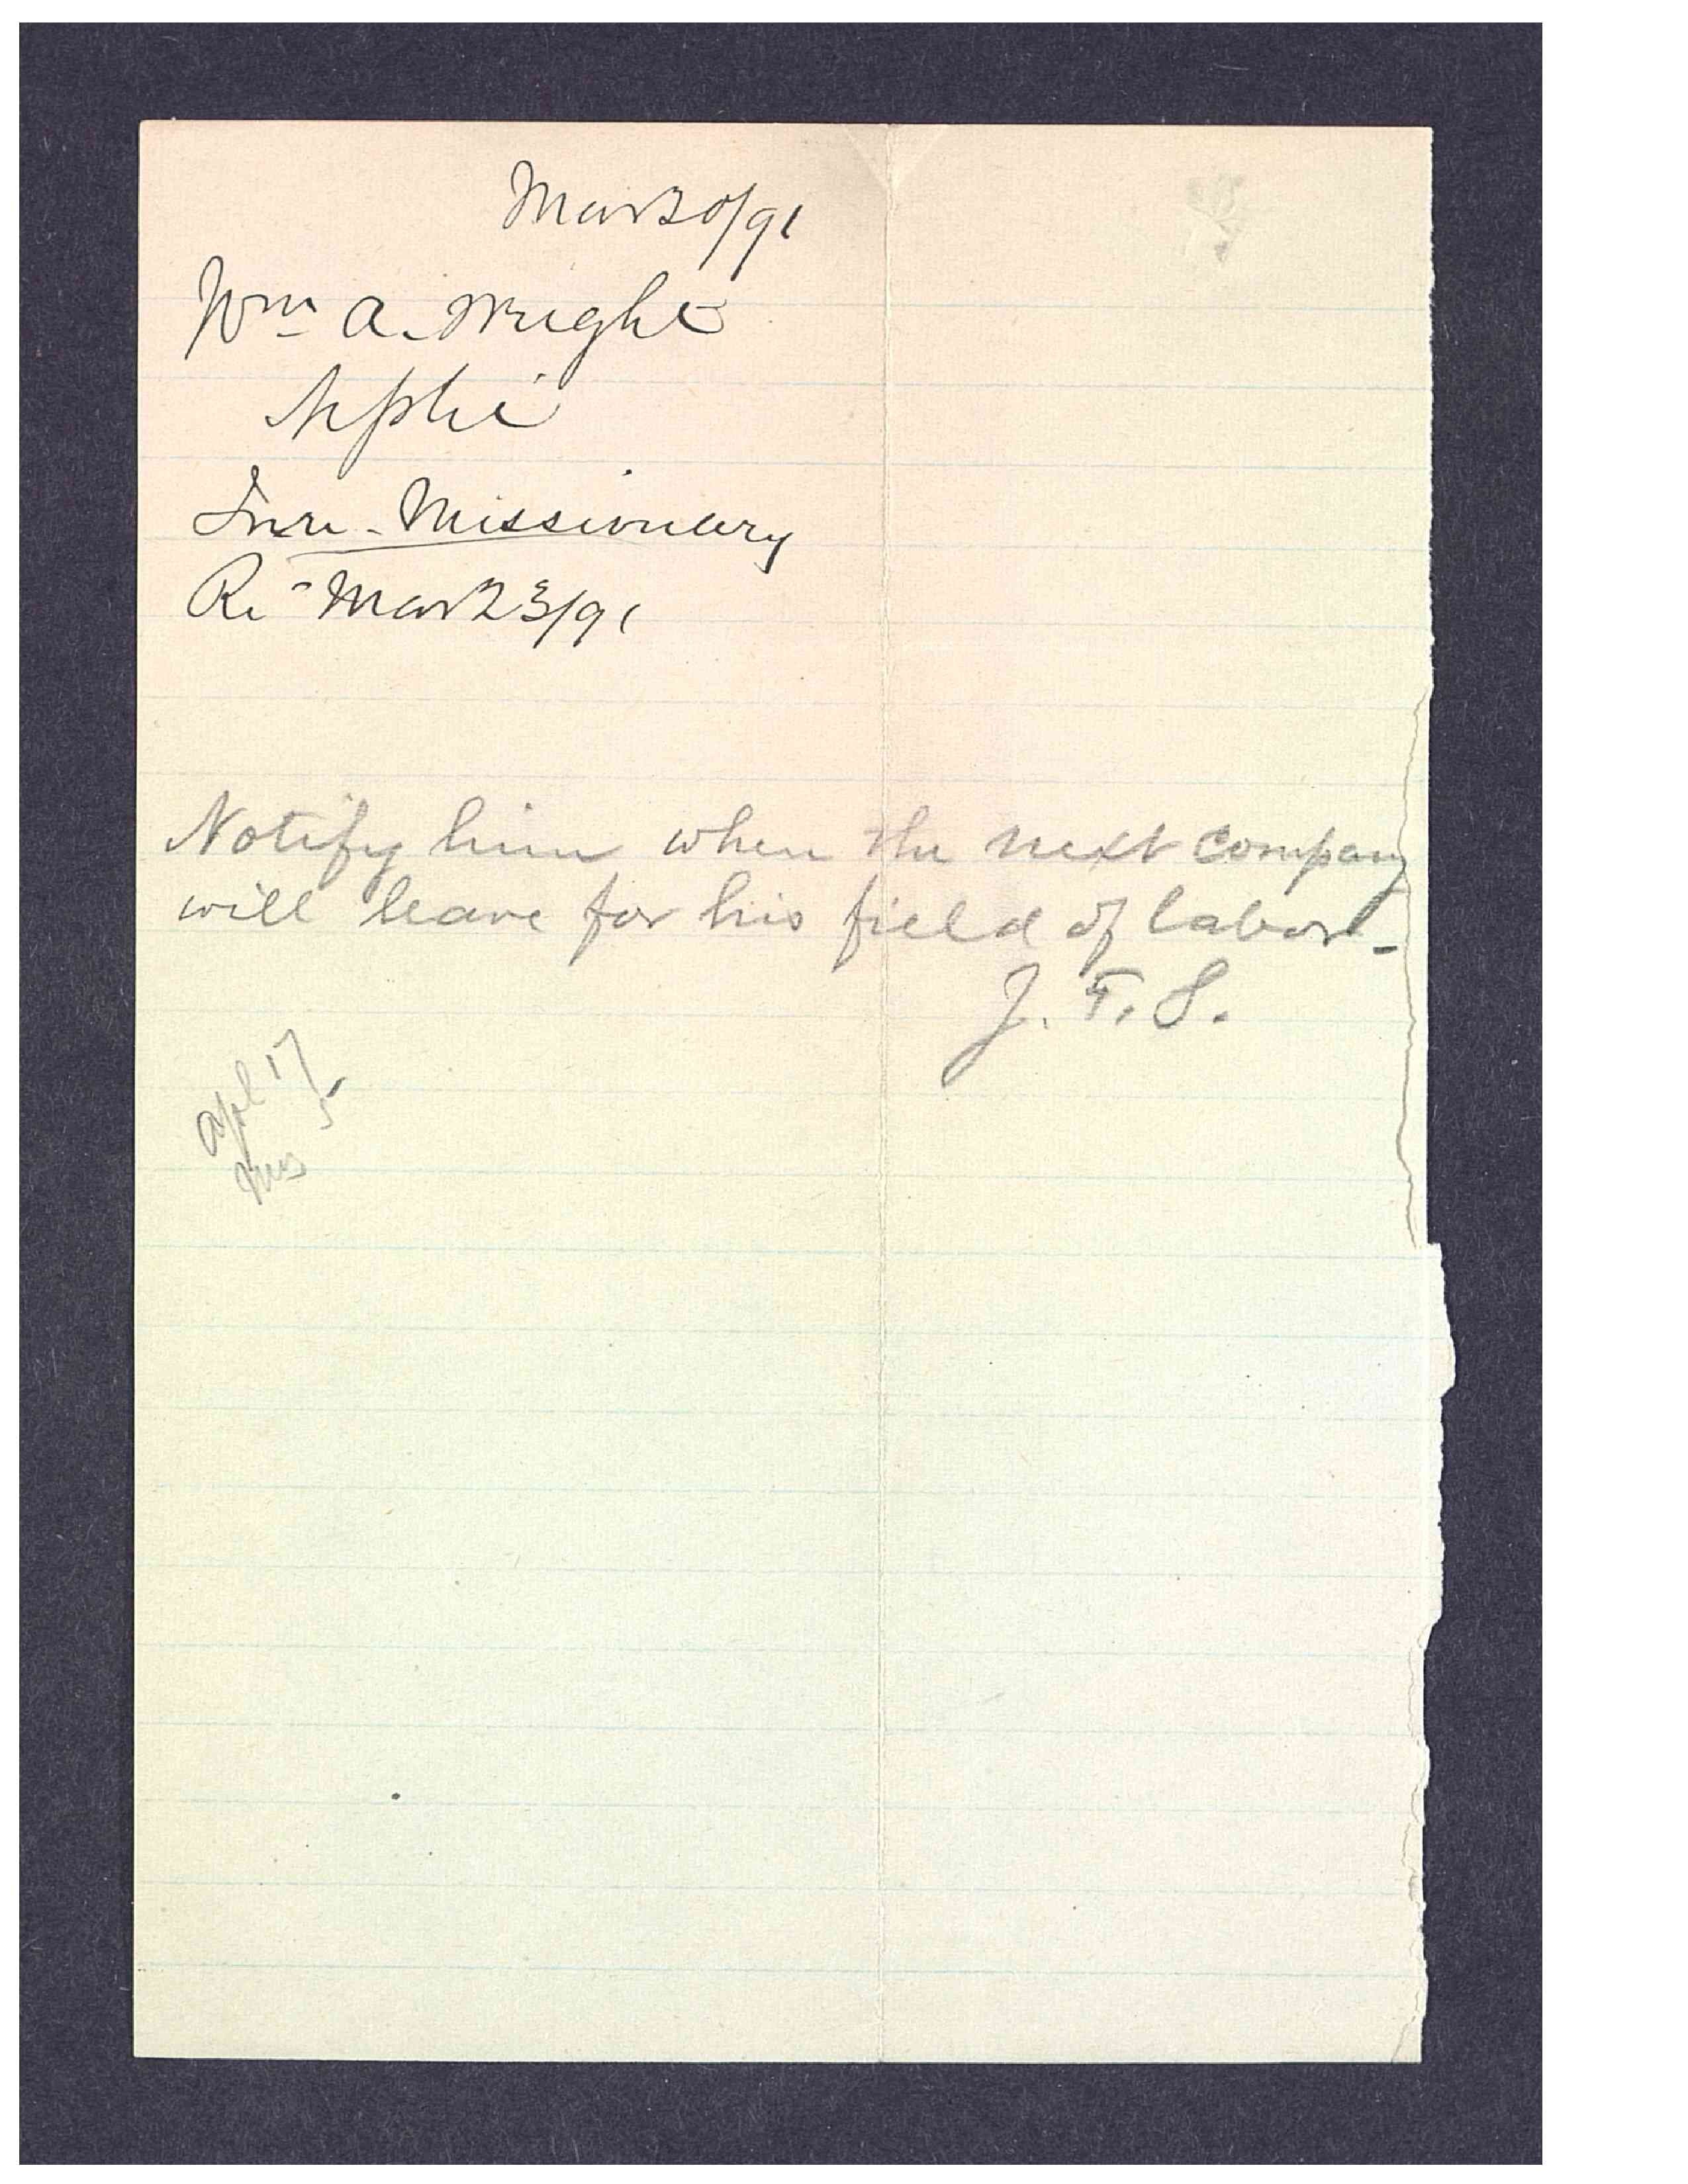 Mar 20/91
Wm A. Wright
Nephi
Missionary
Re - Mar 23/91
Notify him when the next company
will leave for his field of labor -
J. F. S.
Apl 17